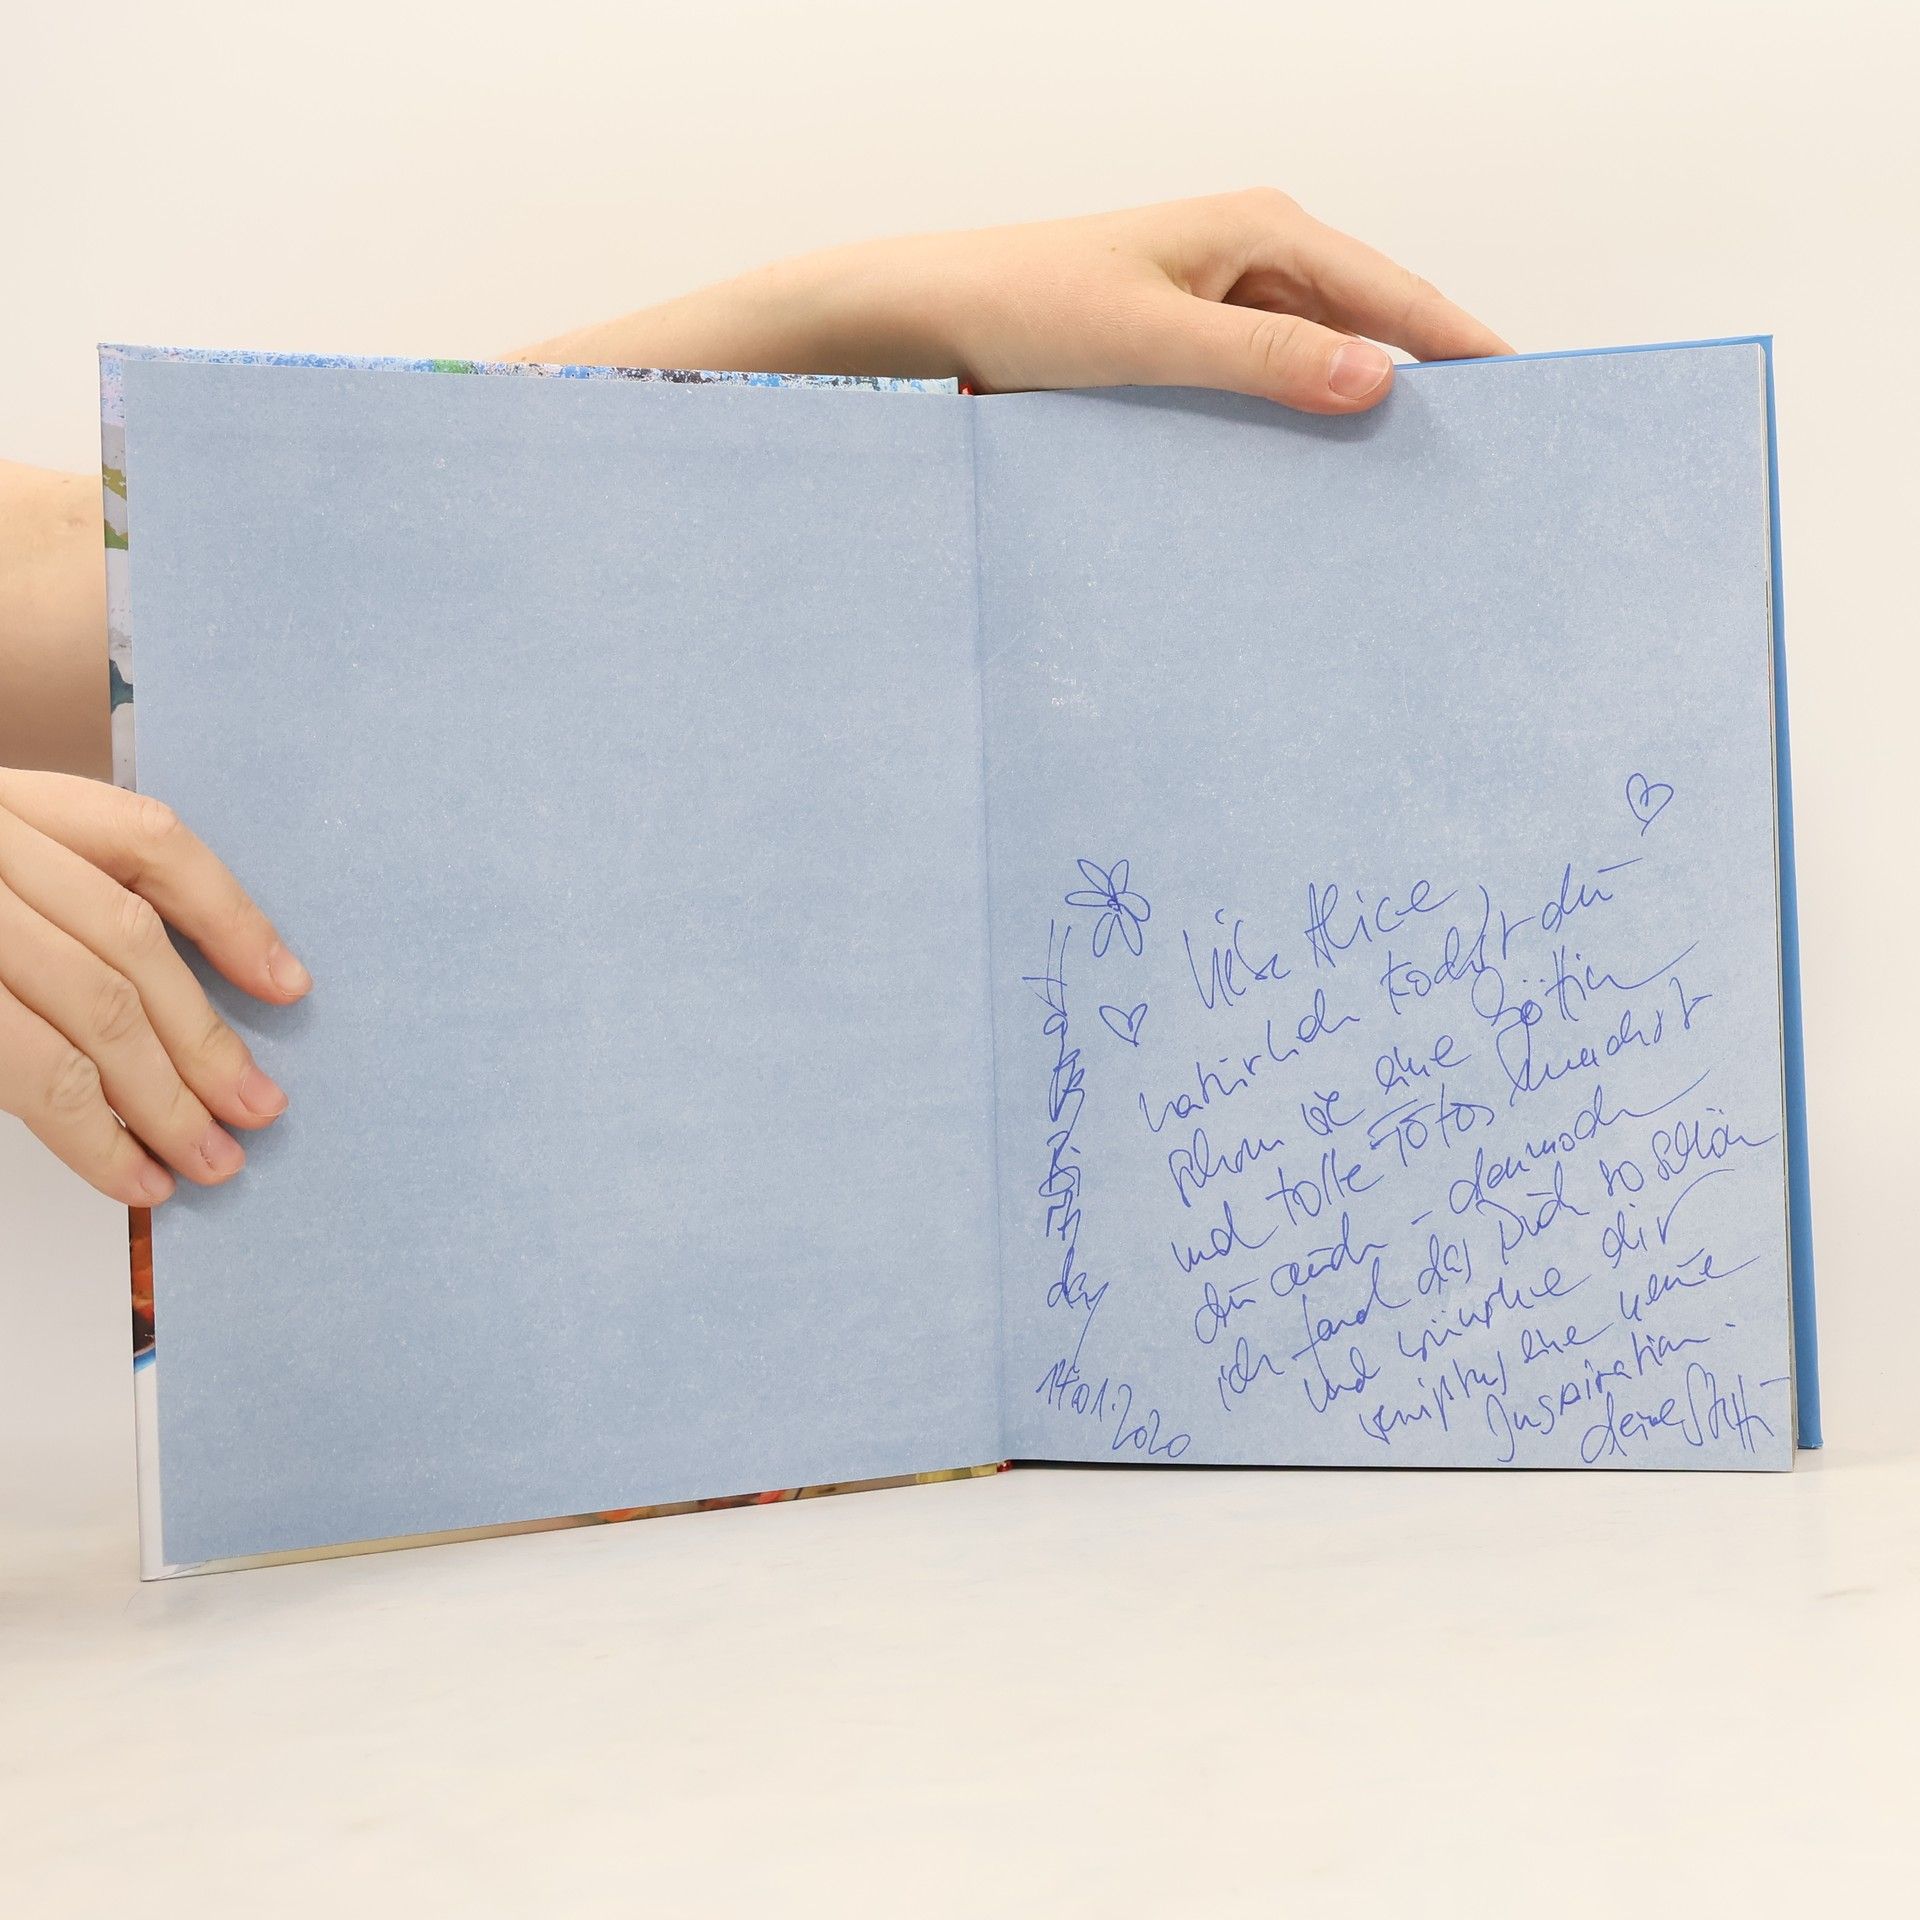 Liebe Alice
natürlich kochst du
schon wie eine Göttin
und tolle Fotos machst
du auch - dennoch
ich fand das Buch so schön
und wünsche dir
eine neue
Inspiration.
deine Steffi
Happy Birthday
14.01.2020